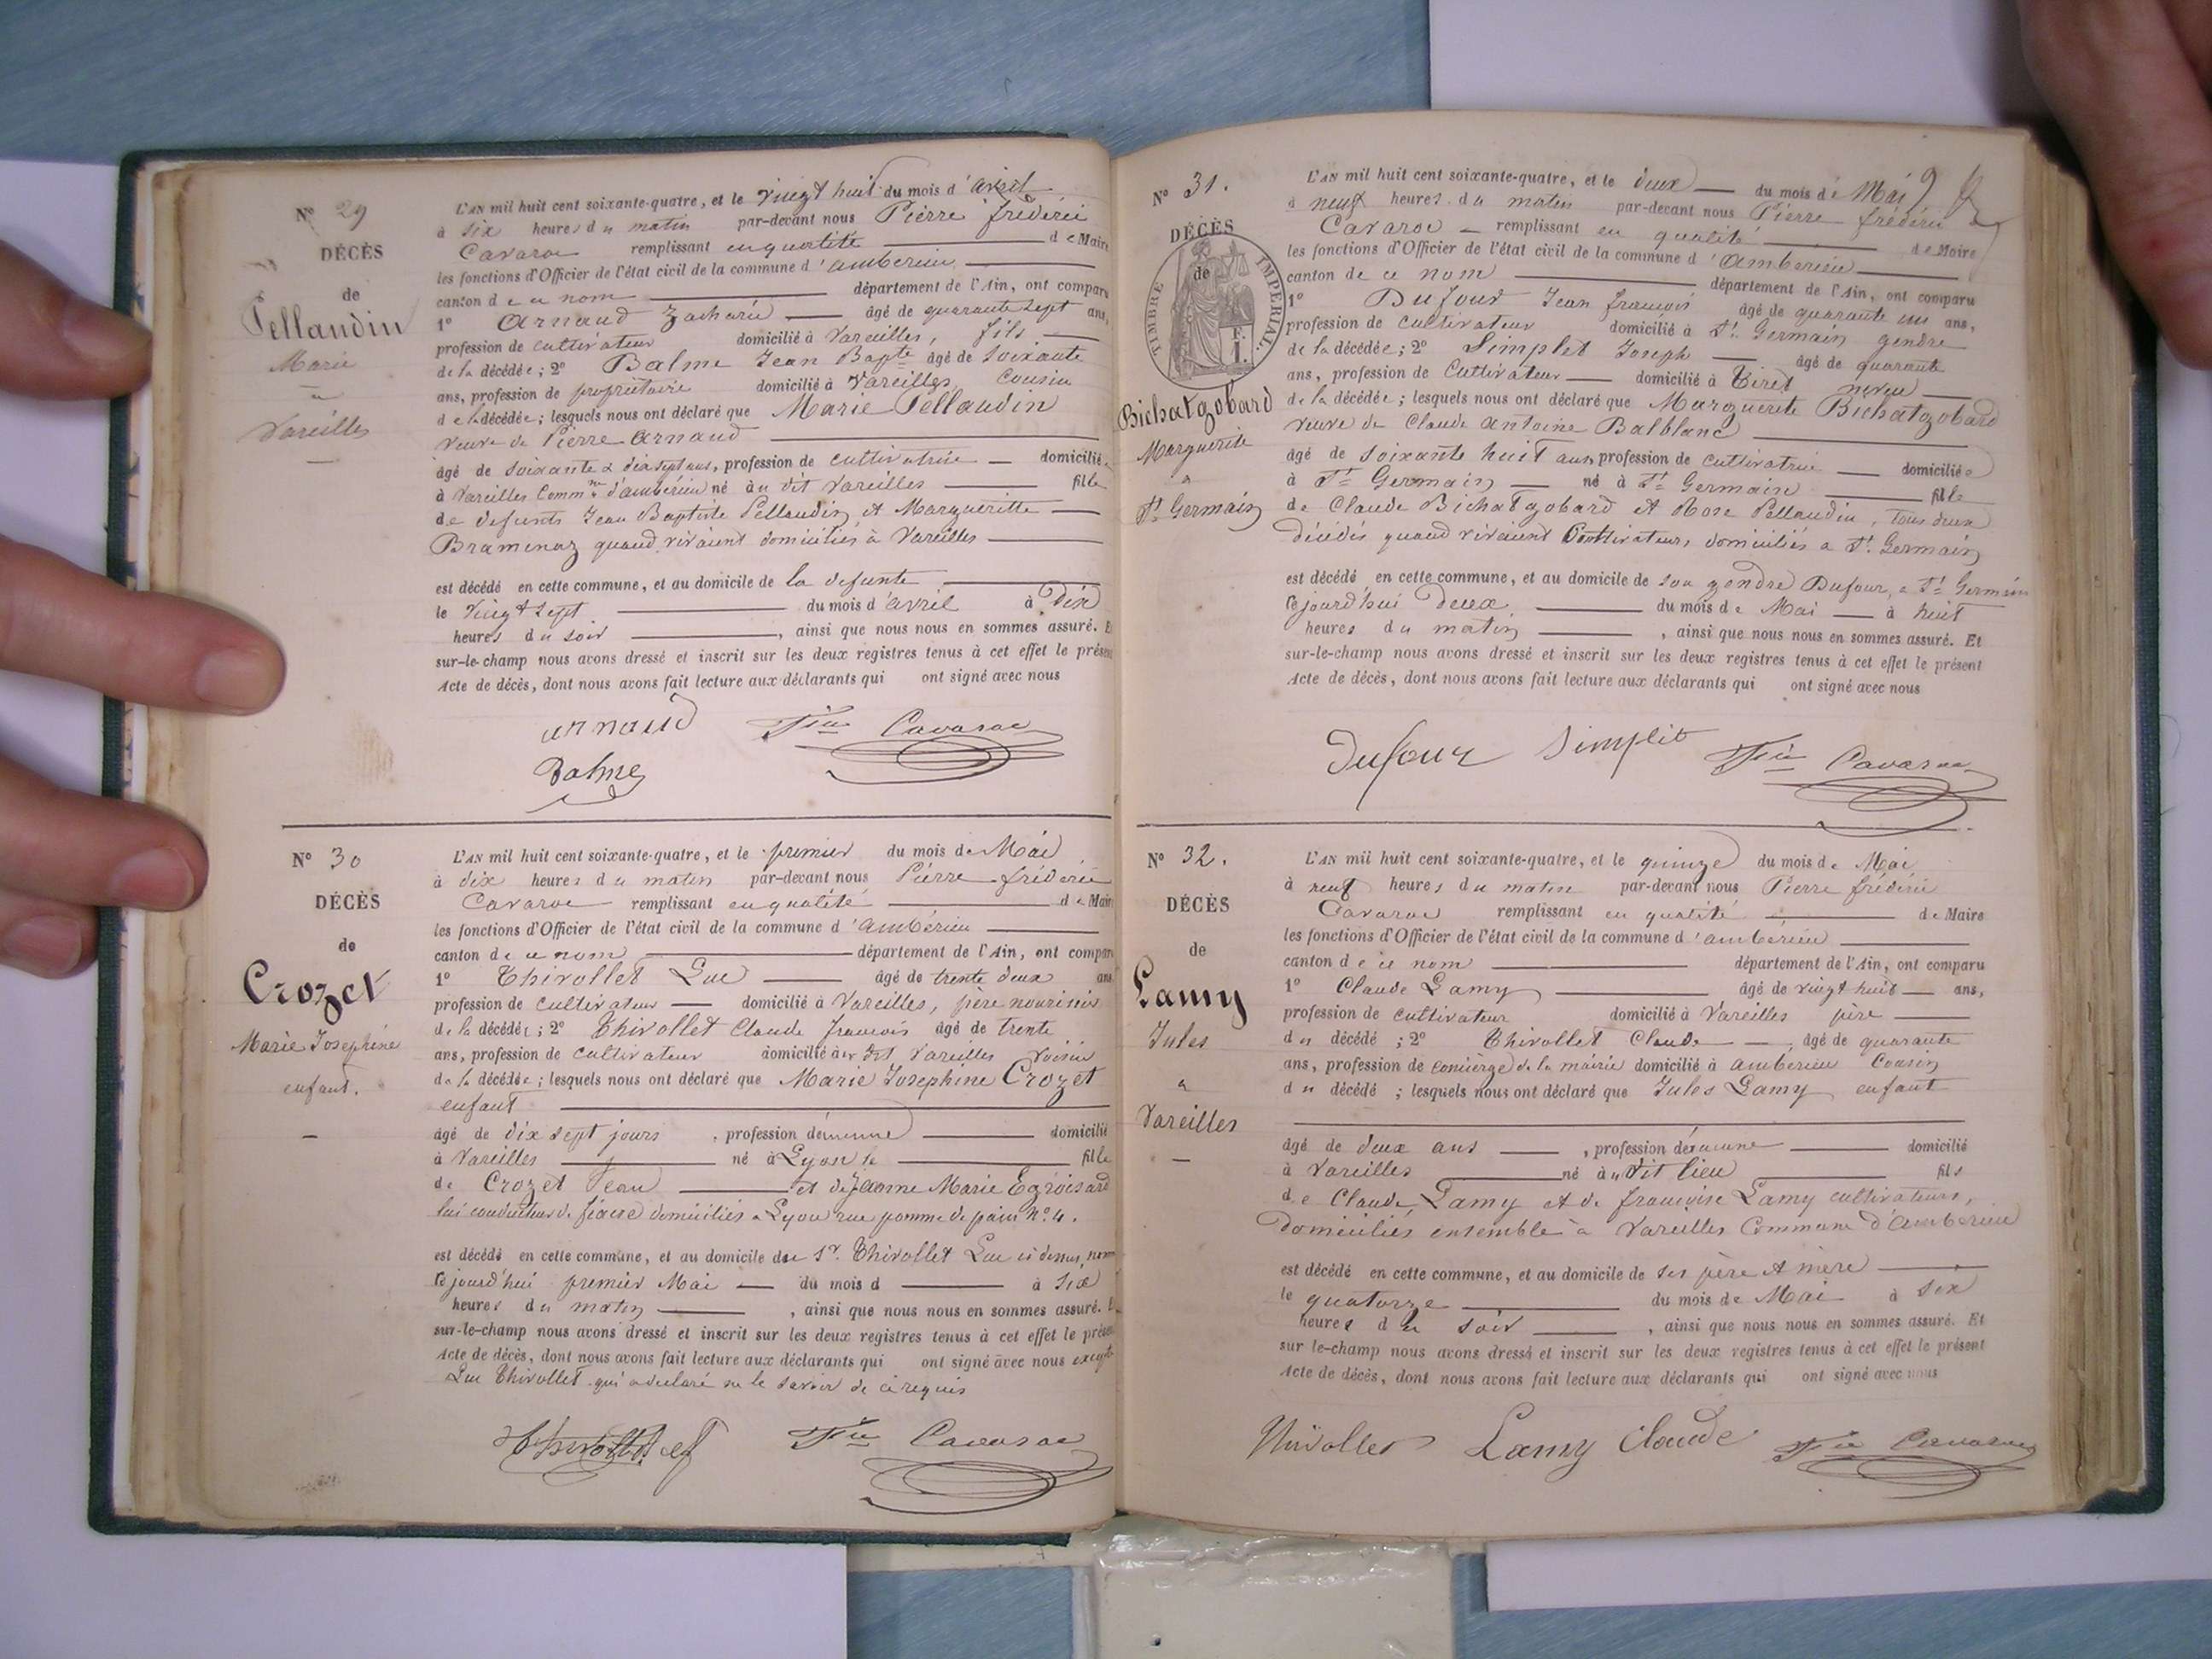 N° 29
DÉCÈS
de
Pellaudin
Marie
à
Vareilles
L'AN mil huit cent soixante-quatre, et le vingt huit du mois d'avril
à six heures du matin par-devant nous Pierre frédéric
Cavaroc remplissant en qualité de Maire
les fonctions d'Officier de l'état civil de la commune d'ambérieu
canton de ce nom département de l'Ain, ont comparu
1° Arnaud Zacharie âgé de quarante sept ans,
profession de cultivateur domicilié à Vareilles, fils
de la décédée; 2° Balme Jean Bapte âgé de soixante
ans, profession de propriétaire domicilié à Vareilles, cousin
de la décédée; lesquels nous ont déclaré que Marie Pellaudin
veuve de Pierre Arnaud
âgé de soixante & dix sept ans, profession de cultivatrice domiciliée
à Vareilles Commne d'ambérieu né au dit Vareilles fille
de defunts Jean Baptiste Pellaudin et Margueritte
Braminaz quand vivaient domiciliés à Vareilles
est décédé en cette commune, et au domicile de la defunte
le vingt sept du mois d'avril à Dix
heures du soir, ainsi que nous nous en sommes assuré. E
sur-le-champ nous avons dressé et inscrit sur les deux registres tenus à cet effet le présen
Acte de décès, dont nous avons fait lecture aux déclarants qui ont signé avec nous
arnaud Fric Cavaroc
Balme
N° 30
DÉCÈS
de
Crozet
Marie Josephine
enfant.
L'AN mil huit cent soixante-quatre, et le premier du mois de Mai
à dix heures du matin par-devant nous Pierre frédéric
Cavaroc remplissant en qualité de Maire
les fonctions d'Officier de l'état civil de la commune d'ambérieu
canton de ce nom département de l'Ain, ont comparu
1° Thivollet Luc âgé de trente deux ans
profession de cultivateur domicilié à Vareilles, père nourricier
de la décédée; 2° Thivollet Claude françois âgé de trente
ans, profession de cultivateur domicilié au dit Vareilles voisin
de la décédée; lesquels nous ont déclaré que Marie Josephine Crozet
enfant
âgé de dix sept jours, profession d domicilié
à Vareilles né à Lyon le fille
de Crozet Jean et de Jeanne Marie Egroisard
lui conducteur de fiacre domiciliés à Lyon rue pomme de pain N° 4.
est décédé en cette commune, et au domicile du Sr. Thivollet Luc ci dessus nom
ce jourd'hui premier Mai du mois d à six
heures du matin, ainsi que nous nous en sommes assuré. E
sur-le-champ nous avons dressé et inscrit sur les deux registres tenus à cet effet le présen
Acte de décès, dont nous avons fait lecture aux déclarants qui ont signé avec nous excepté
Luc Thivollet qui a declaré ne le savoir de ce requis
Thivollet cf Fric Cavaroc
N° 31.
DÉCÈS
de
TIMBRE IMPERIAL.
F.
1.
Bichatgobard
Marguerite
à
St. Germain
L'AN mil huit cent soixante-quatre, et le deux du mois de Mai 9
à neuf heures du matin par-devant nous Pierre frédéric
Cavaroc remplissant en qualité de Maire
les fonctions d'Officier de l'état civil de la commune d'ambérieu
canton de ce nom département de l'Ain, ont comparu
1° Dufour Jean françois âgé de quarante un ans,
profession de cultivateur domicilié à St. Germain gendre
de la décédée; 2° Simplet Joseph âgé de quarante
ans, profession de Cultivateur domicilié à Tiret neveu
de la décédée; lesquels nous ont déclaré que Marguerite Bichatgobard
veuve de Claude Antoine Balblanc
âgé de soixante huit ans, profession de cultivatrice domiciliée
à St Germain né à St Germain fille
de Claude Bichatgobard et Rose Pellaudin, tous deux
décédés quand vivaient Cultivateurs domiciliés à St. Germain
est décédé en cette commune, et au domicile de son gendre Dufour, à St Germain
ce jourd'hui deux du mois de Mai à huit
heures du matin, ainsi que nous nous en sommes assuré. Et
sur-le-champ nous avons dressé et inscrit sur les deux registres tenus à cet effet le présent
Acte de décès, dont nous avons fait lecture aux déclarants qui ont signé avec nous
Dufour Simplet Fric Cavaroc
N° 32.
DÉCÈS
de
Lamy
Jules
à
Vareilles
L'AN mil huit cent soixante-quatre, et le quinze du mois de Mai
à neuf heures du matin par-devant nous Pierre frédéric
Cavaroc remplissant en qualité de Maire
les fonctions d'Officier de l'état civil de la commune d'ambérieu
canton de ce nom département de l'Ain, ont comparu
1° Claude Lamy âgé de vingt huit ans,
profession de cultivateur domicilié à Vareilles père
du décédé; 2° Thivollet Claude âgé de quarante
ans, profession de concierge de la mairie domicilié à amberieu Cousin
du décédé; lesquels nous ont déclaré que Jules Lamy enfant
âgé de deux ans, profession d'aucune domicilié
à Vareilles né au dit lieu fils
de Claude Lamy et de françoise Lamy cultivateurs,
domiciliés ensemble à Vareilles Commune d'amberieu
est décédé en cette commune, et au domicile de ses père et mère
le quatorze du mois de Mai à six
heures du soir, ainsi que nous nous en sommes assuré. Et
sur le-champ nous avons dressé et inscrit sur les deux registres tenus à cet effet le présent
Acte de décès, dont nous avons fait lecture aux déclarants qui ont signé avec nous
Thivollet Lamy Claude Fric Cavaroc